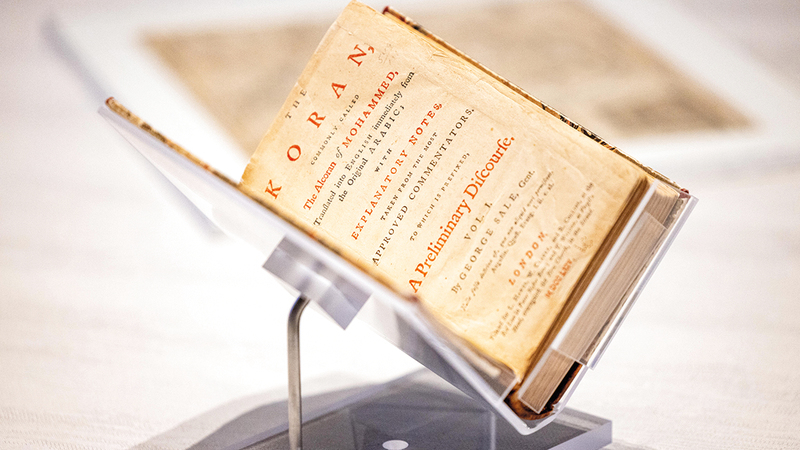 THE
KORAN,
COMMONLY CALLED
The Alcoran of MOHAMMED,
Tranſlated into ENGLISH immediately from
the Original ARABIC;
WITH
EXPLANATORY NOTES,
TAKEN FROM THE MOST
APPROVED COMMENTATORS.
TO WHICH IS PREFIXED,
A Preliminary Diſcourſe.
VOL. I.
By GEORGE SALE, Gent.
LONDON,